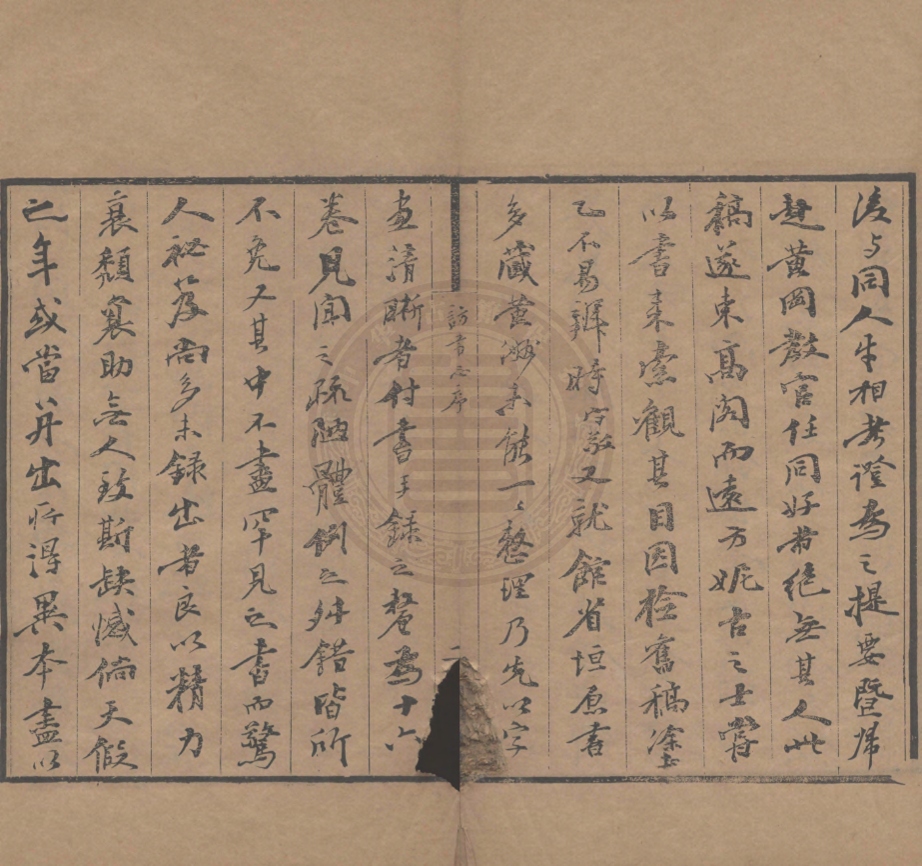 後与同人牛相考證為之提要暨歸
赴黄岡教官任同好者絶無其人此
稿遂束高閣而遠方妮古之士嘗
以書来索觀其目因檢舊稿塗
乙不易辨時守敬又就館省垣原書
多藏黄州未能一〻整理乃先以字
畫清晰者付書手録之釐為十六
訪書志序
卷見聞之疏陋體例之舛錯皆所
不免又其中不盡罕見之書而驚
人祕笈尚多未録出者良以精力
衰頹襄助無人致斯缺憾倘天假
之年或當并出所得異本盡以